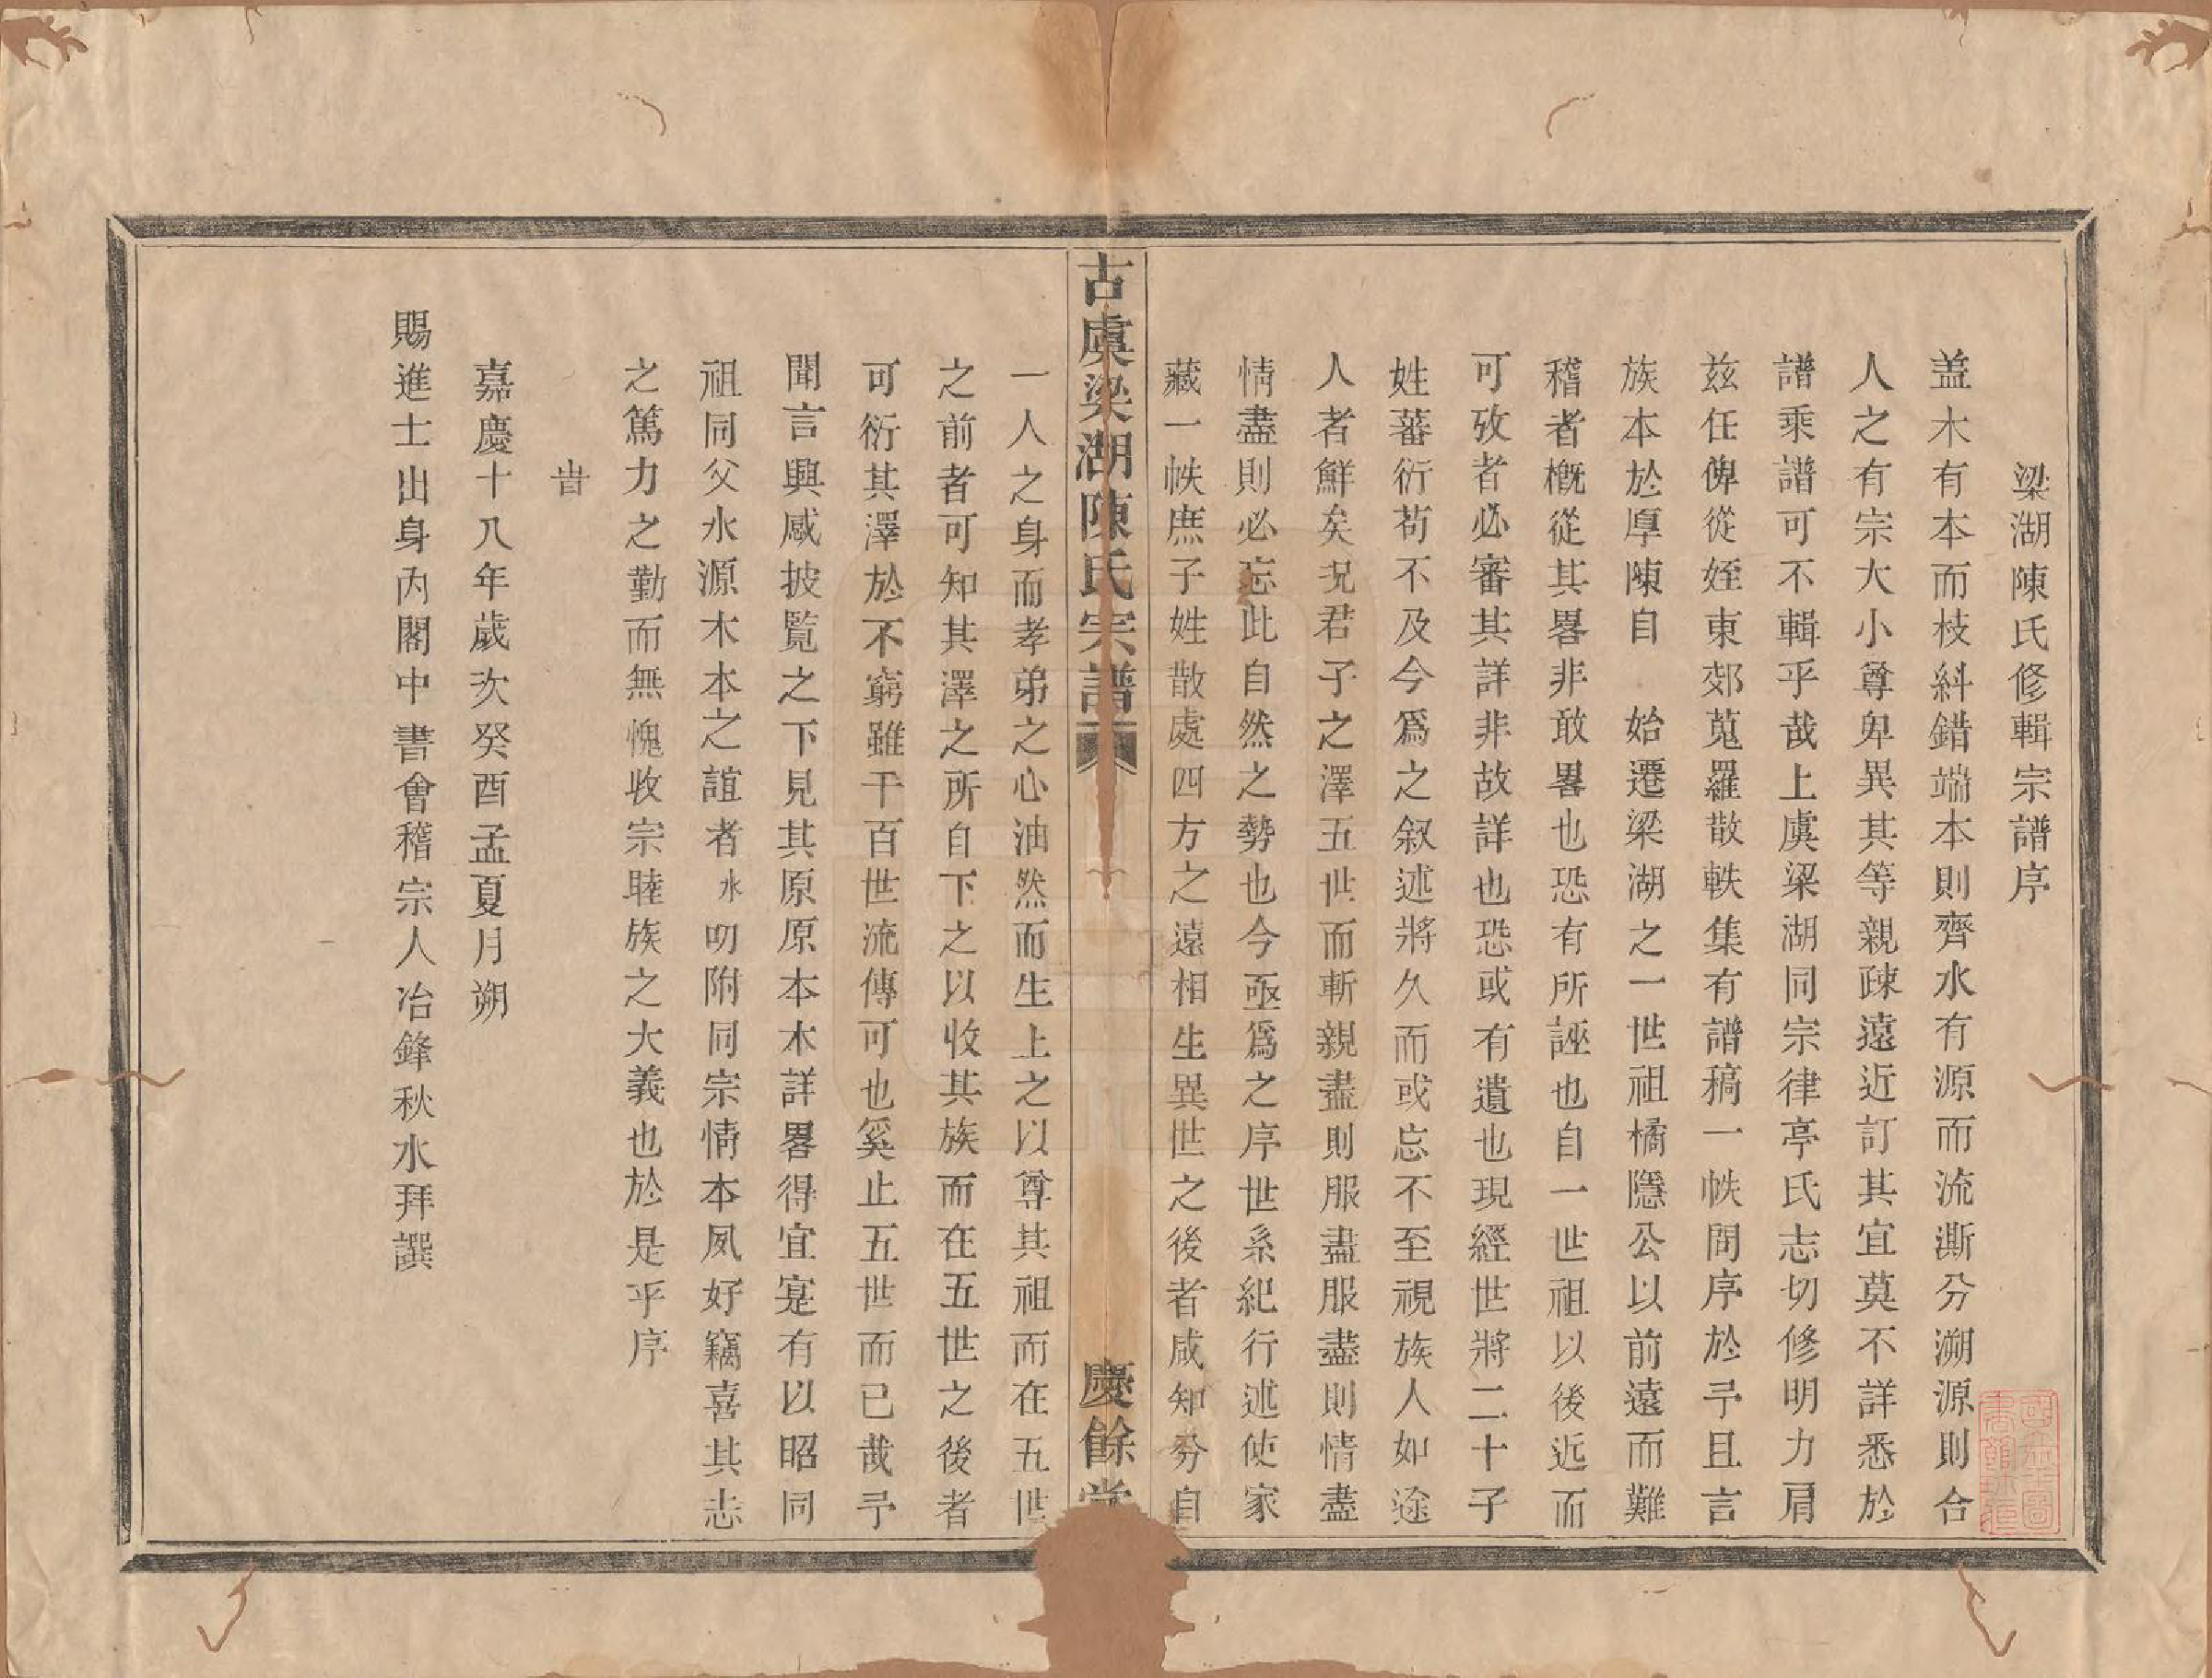 梁湖陳氏修輯宗譜序
葢木有本而枝斜錯端本則齊水有源而流澌分溯源則合
人之有宗大小尊卑異其等親疎遠近訂其宜莫不詳悉於
譜乘譜可不輯乎哉上虞梁湖同宗律亭氏志切修明力肩
玆任俾從姪東郊蒐羅散軼集有譜稿一帙問序於予且言
族本於厚陳自 始遷梁湖之一世祖橘隱公以前遠而難
稽者槪從其畧非敢畧也恐有所誣也自一世祖以後近而
可攷者必審其詳非故詳也恐或有遺也現經世將二十子
姓蕃衍苟不及今爲之叙述將久而或忘不至視族人如途
人者鮮矣況君子之澤五世而斬親盡則服盡服盡則情盡
情盡則必忘此自然之勢也今亟爲之序世系紀行述使家
藏一帙庶子姓散處四方之遠相生異世之後者咸知分自
古虞梁湖陳氏宗譜
慶餘堂
一人之身而孝弟之心油然而生上之以尊其祖而在五世
之前者可知其澤之所自下之以收其族而在五世之後者
可衍其澤於不窮雖千百世流傳可也奚止五世而已哉予
聞言興感披覧之下見其原原本本詳畧得宜寔有以昭同
祖同父水源木本之誼者水叨附同宗情本夙好竊喜其志
之篤力之勤而無愧收宗睦族之大義也於是乎序
旹
嘉慶十八年歲次癸酉孟夏月朔
賜進士出身內閣中書會稽宗人冶鋒秋水拜譔